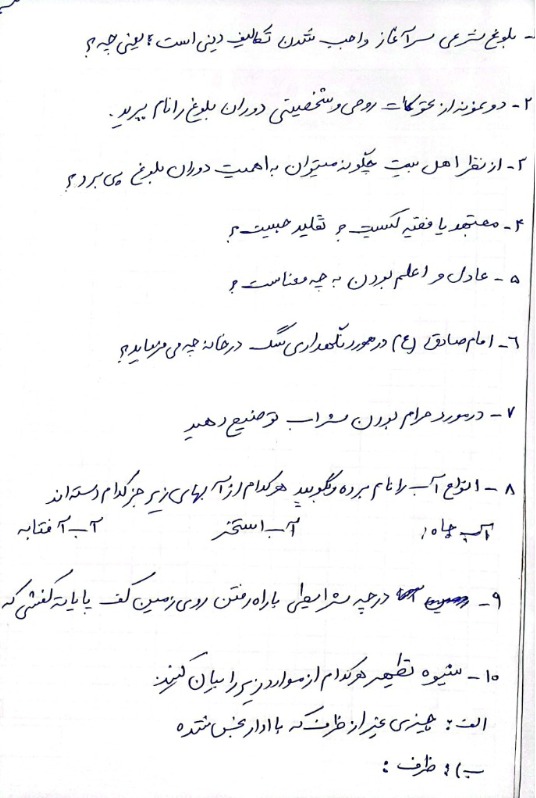 ۱- بلوغ شرعی سرآغاز واجب شدن تکالیف دینی است؛ یعنی چه؟
۲- دو نمونه از تحولات روحی و شخصیتی دوران بلوغ را نام ببرید.
۳- از نظر اهل بیت چگونه میتوان به اهمیت دوران بلوغ پی برد؟
۴- مجتهد یا فقیه کیست؟ تقلید چیست؟
۵- عادل و اعلم بودن به چه معناست؟
۶- امام صادق (ع) در مورد نگهداری سگ در خانه چه می فرماید؟
۷- در مورد حرام بودن شراب توضیح دهید
۸- انواع آب را نام برده و بگویید هر کدام از آبهای زیر جز کدام دسته اند
آب چاه: آب استخر آب آفتابه
۹- در چه شرایطی با راه رفتن روی زمین کف پا یا ته کفشی که
۱۰- شیوه تطهیر هر کدام از موارد زیر را بیان کنید
الف: چیزی غیر از ظرف که با ادرار نجس شده
ب): ظرف: